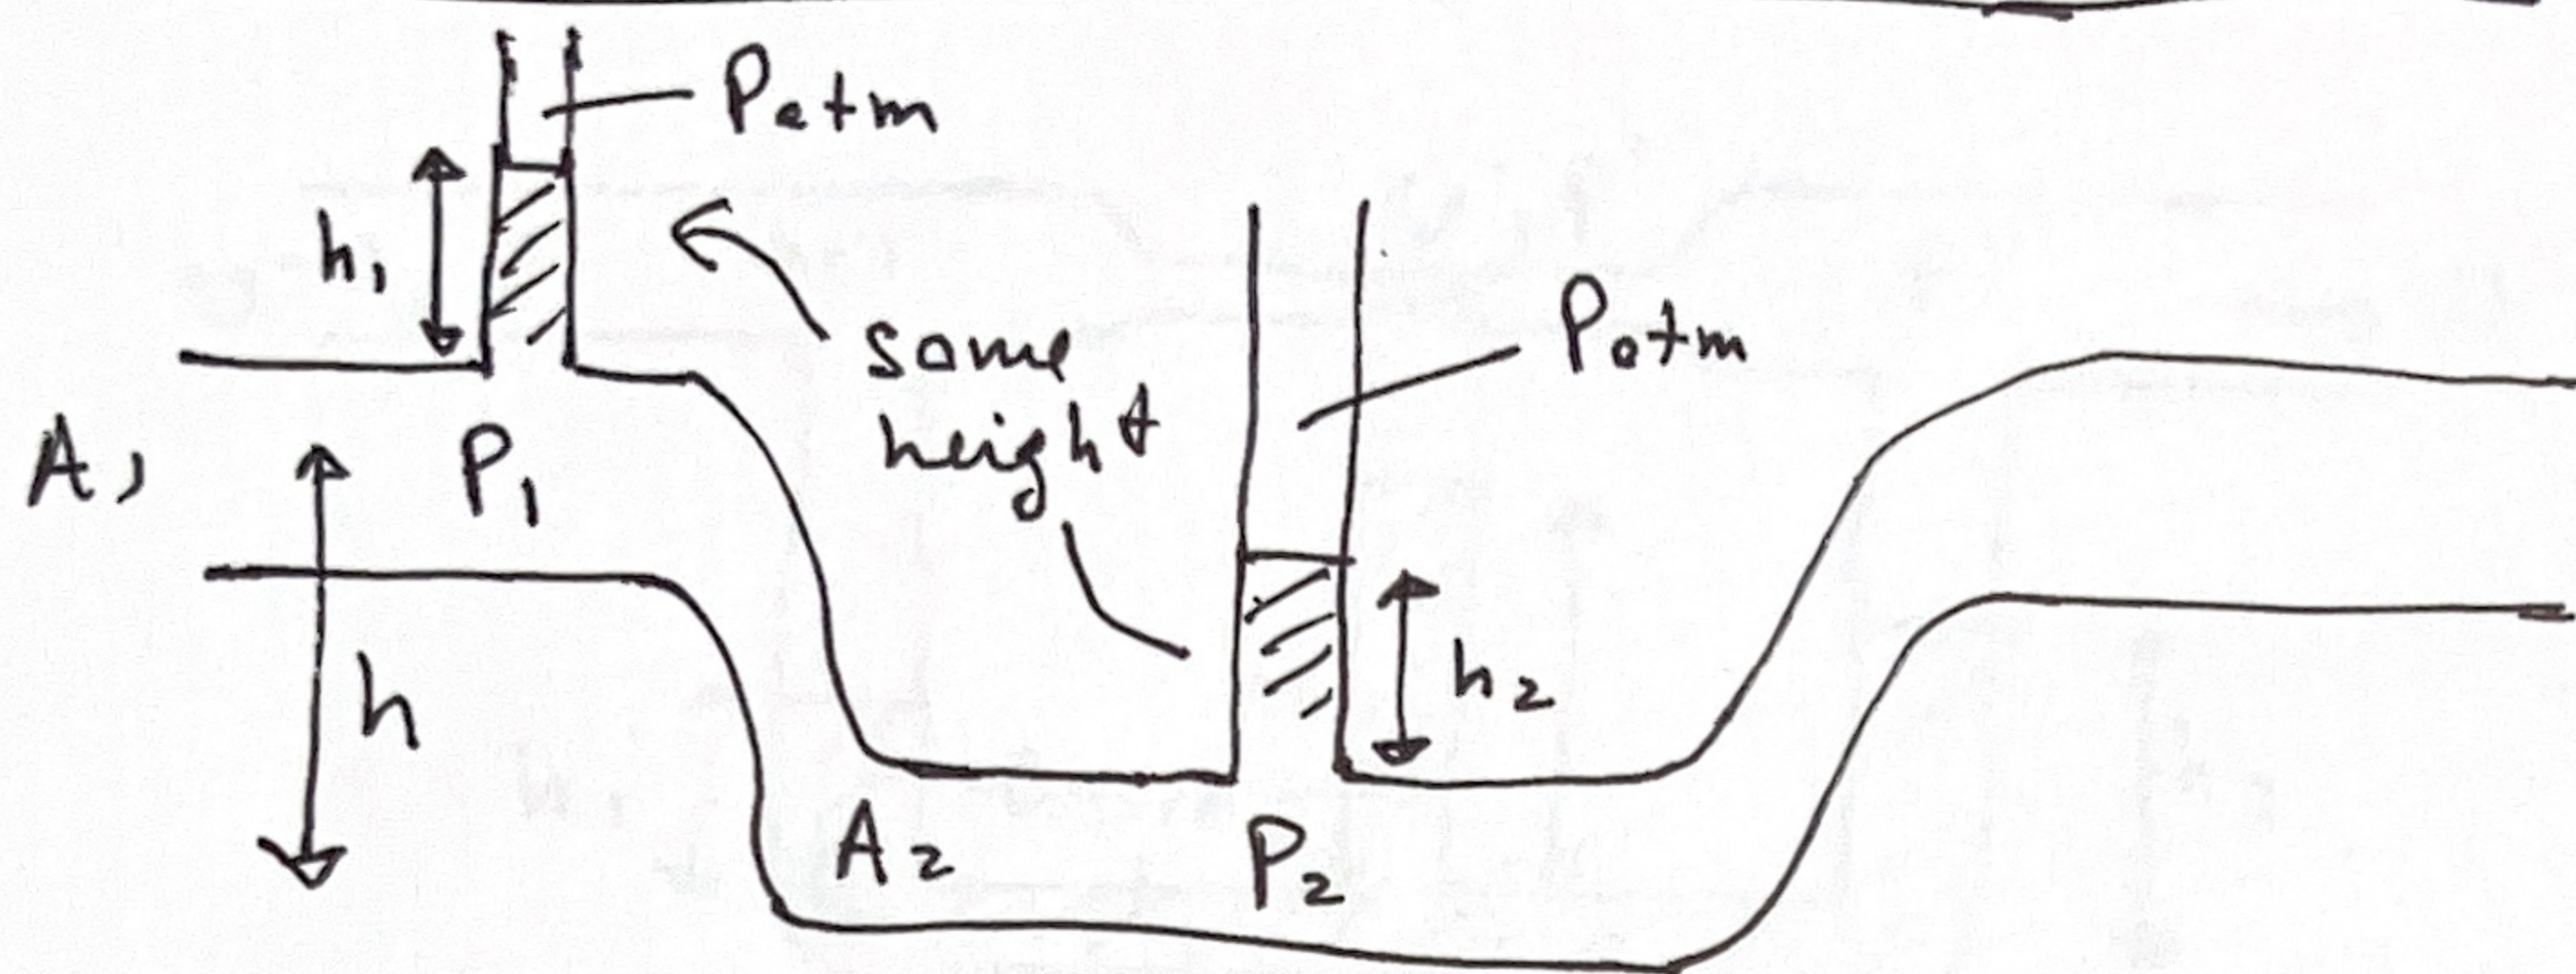 Patm
h₁
some
height
Patm
A₁
P₁
h₂
h
A₂
P₂